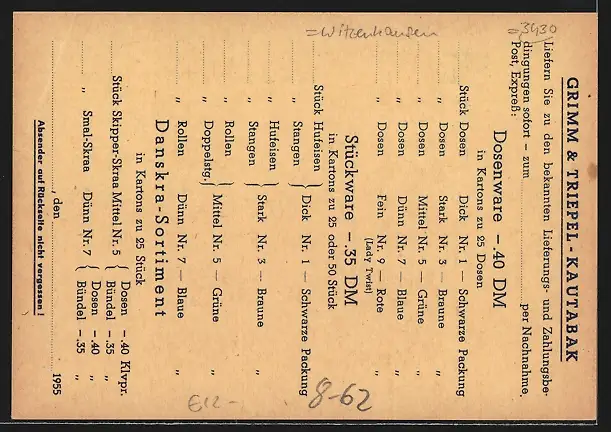 =Witzenhausen
=3430
GRIMM & TRIEPEL-KAUTABAK
Liefern Sie zu den bekannten Lieferungs- und Zahlungsbe-
dingungen sofort – zum ............ per Nachnahme,
Post, Expreß:
Dosenware –.40 DM
in Kartons zu 25 Dosen
Stück Dosen Dick Nr. 1 — Schwarze Packung
" Dosen Stark Nr. 3 — Braune "
" Dosen Mittel Nr. 5 — Grüne "
" Dosen Dünn Nr. 7 — Blaue "
" Dosen Fein Nr. 9 — Rote "
(Lady Twist)
Stückware –.35 DM
in Kartons zu 25 oder 50 Stück
Stück Hufeisen } Dick Nr. 1 — Schwarze Packung
" Stangen
" Hufeisen } Stark Nr. 3 — Braune "
" Stangen
" Rollen } Mittel Nr. 5 — Grüne "
" Doppelstg.
" Rollen Dünn Nr. 7 — Blaue "
Danskra-Sortiment
in Kartons zu 25 Stück
Stück Skipper-Skraa Mittel Nr. 5 { Dosen –.40 Klvpr.
Bündel –.35 "
" Smal-Skraa Dünn Nr. 7 { Dosen –.40 "
Bündel –.35 "
............, den ............ 1955
Absender auf Rückseite nicht vergessen!
8-62
€12-